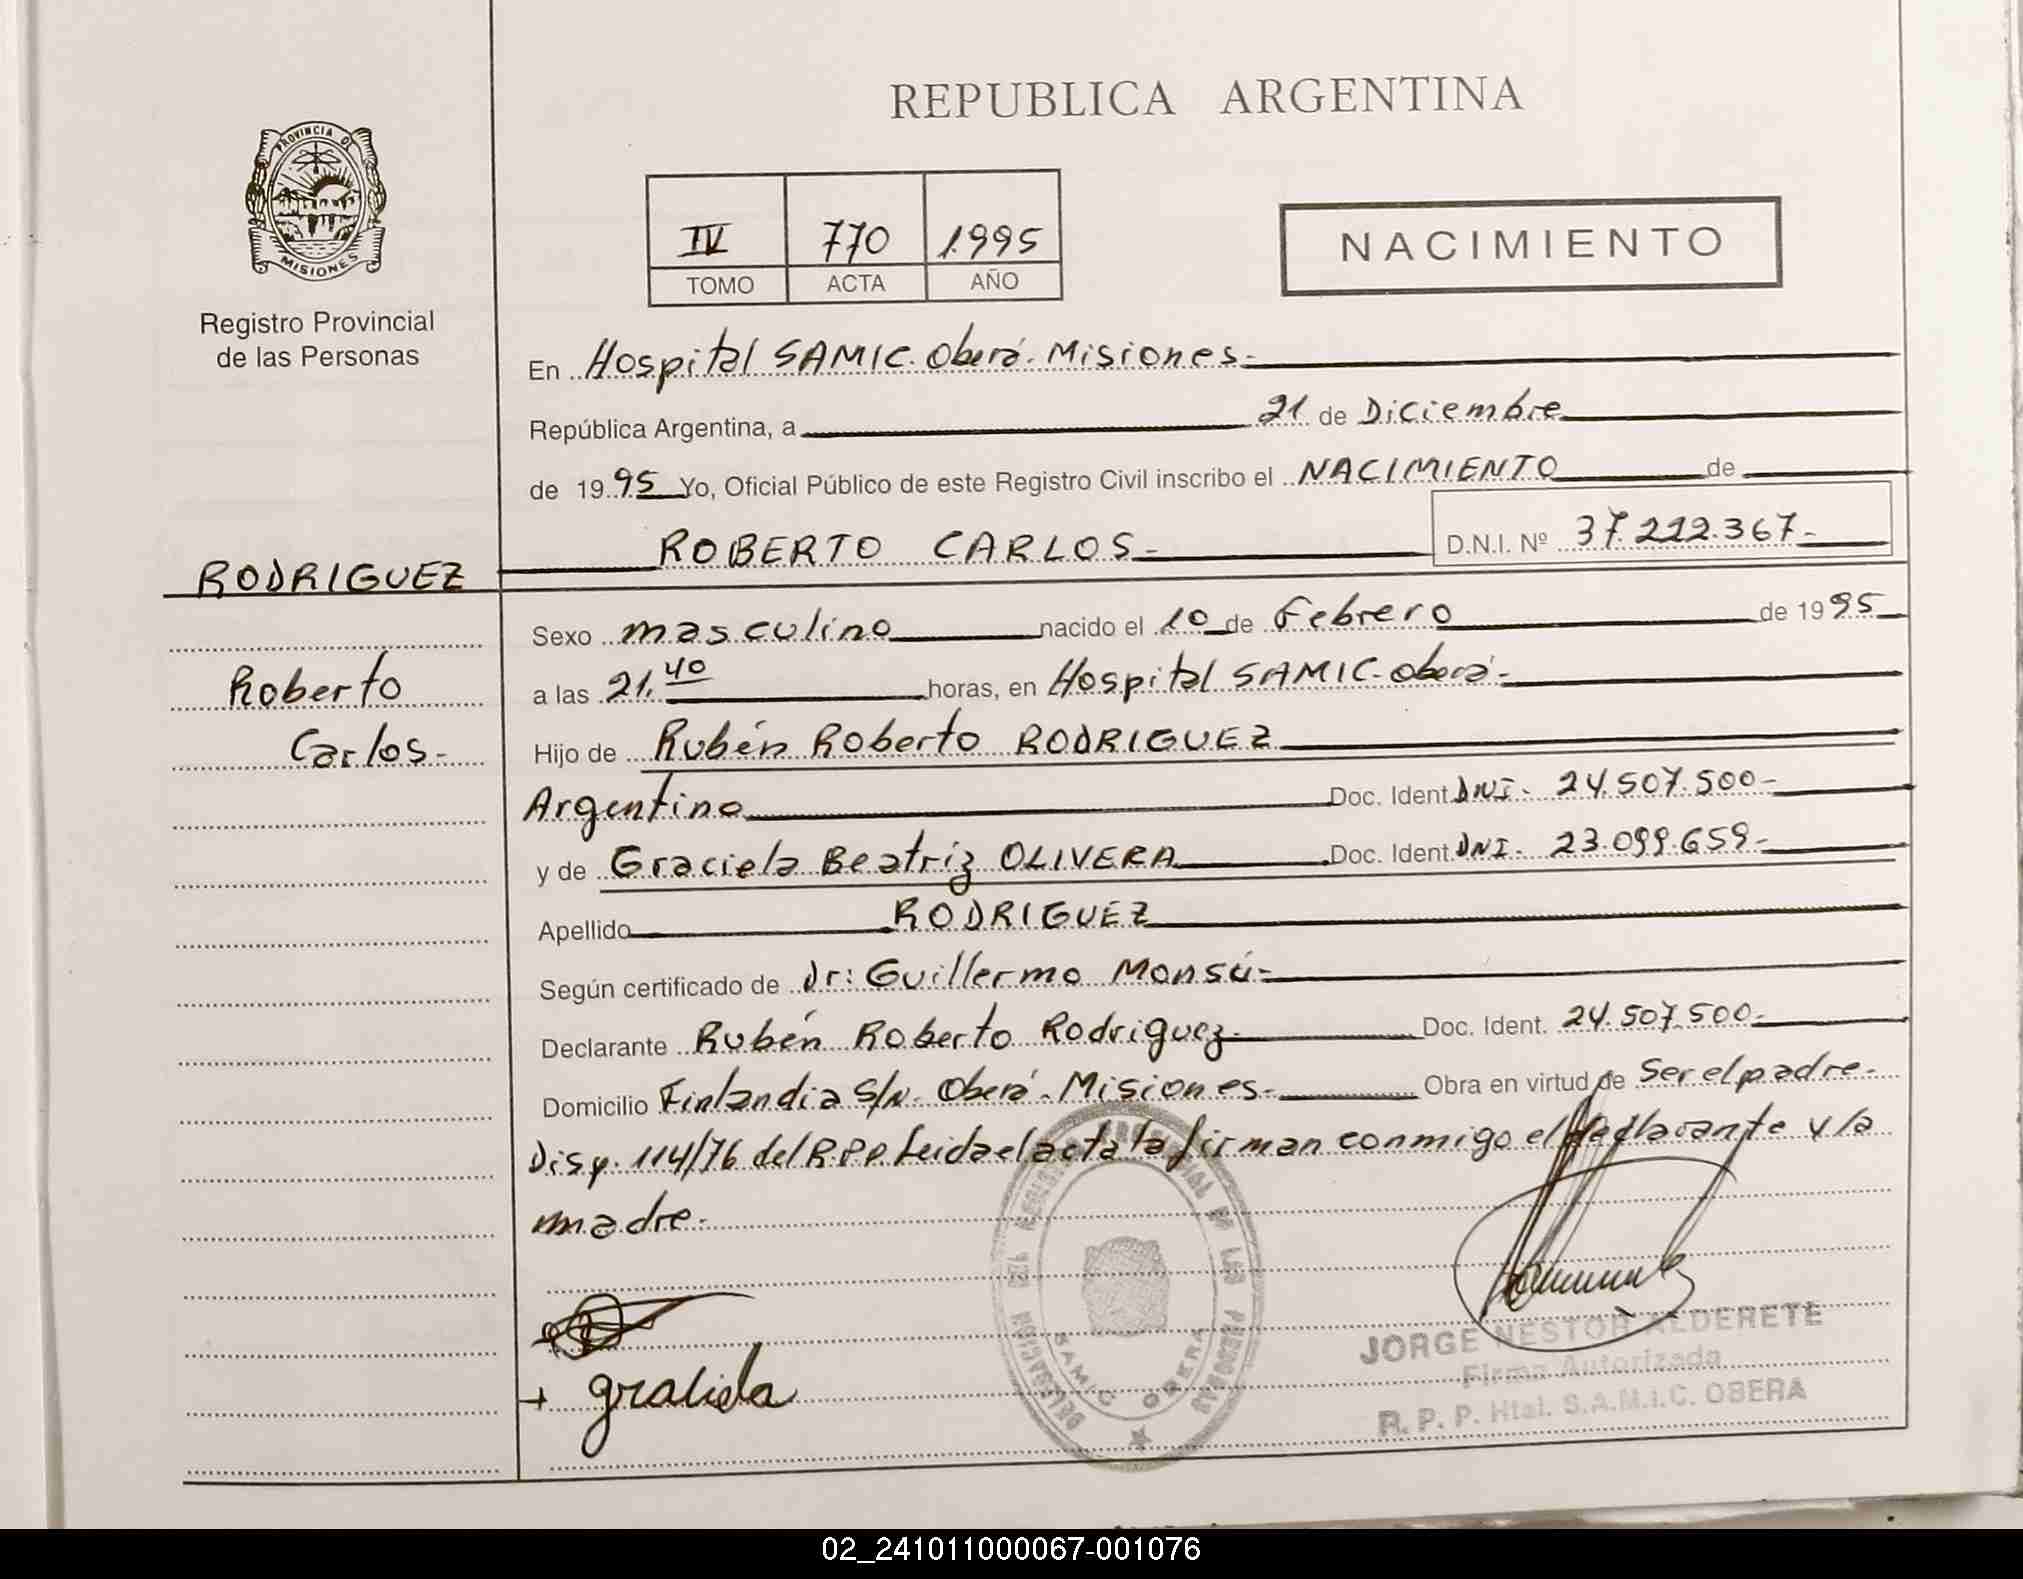 REPUBLICA ARGENTINA
PROVINCIA DE
MISIONES
Registro Provincial
de las Personas
IV 770 1995
TOMO ACTA AÑO
NACIMIENTO
En Hospital SAMIC. Oberá. Misiones.
República Argentina, a 21 de Diciembre
de 1995 Yo, Oficial Público de este Registro Civil inscribo el NACIMIENTO de
ROBERTO CARLOS- D.N.I. Nº 37.222.367.-
RODRIGUEZ
Roberto
Carlos-
Sexo masculino nacido el 10 de Febrero de 1995
a las 21.40 horas, en Hospital SAMIC. Oberá.
Hijo de Rubén Roberto RODRIGUEZ
Argentino Doc. Ident. DNI. 24.507.500-
y de Graciela Beatríz OLIVERA Doc. Ident. DNI. 23.099.659-
Apellido RODRIGUEZ
Según certificado de Dr: Guillermo Monsú-
Declarante Rubén Roberto Rodriguez. Doc. Ident. 24.507.500.
Domicilio Finlandia S/N. Oberá. Misiones. Obra en virtud de Ser el padre.
Disp. 114/76 del R.P.P. Leida el acta la firman conmigo el declarante y la
madre.
DELEGACION DEL REGISTRO PROVINCIAL DE LAS PERSONAS
SAMIC OBERA
JORGE NESTOR ALDERETE
Firma Autorizada
R. P. P. Htal. S.A.M.I.C. OBERA
+ graciela
02_241011000067-001076